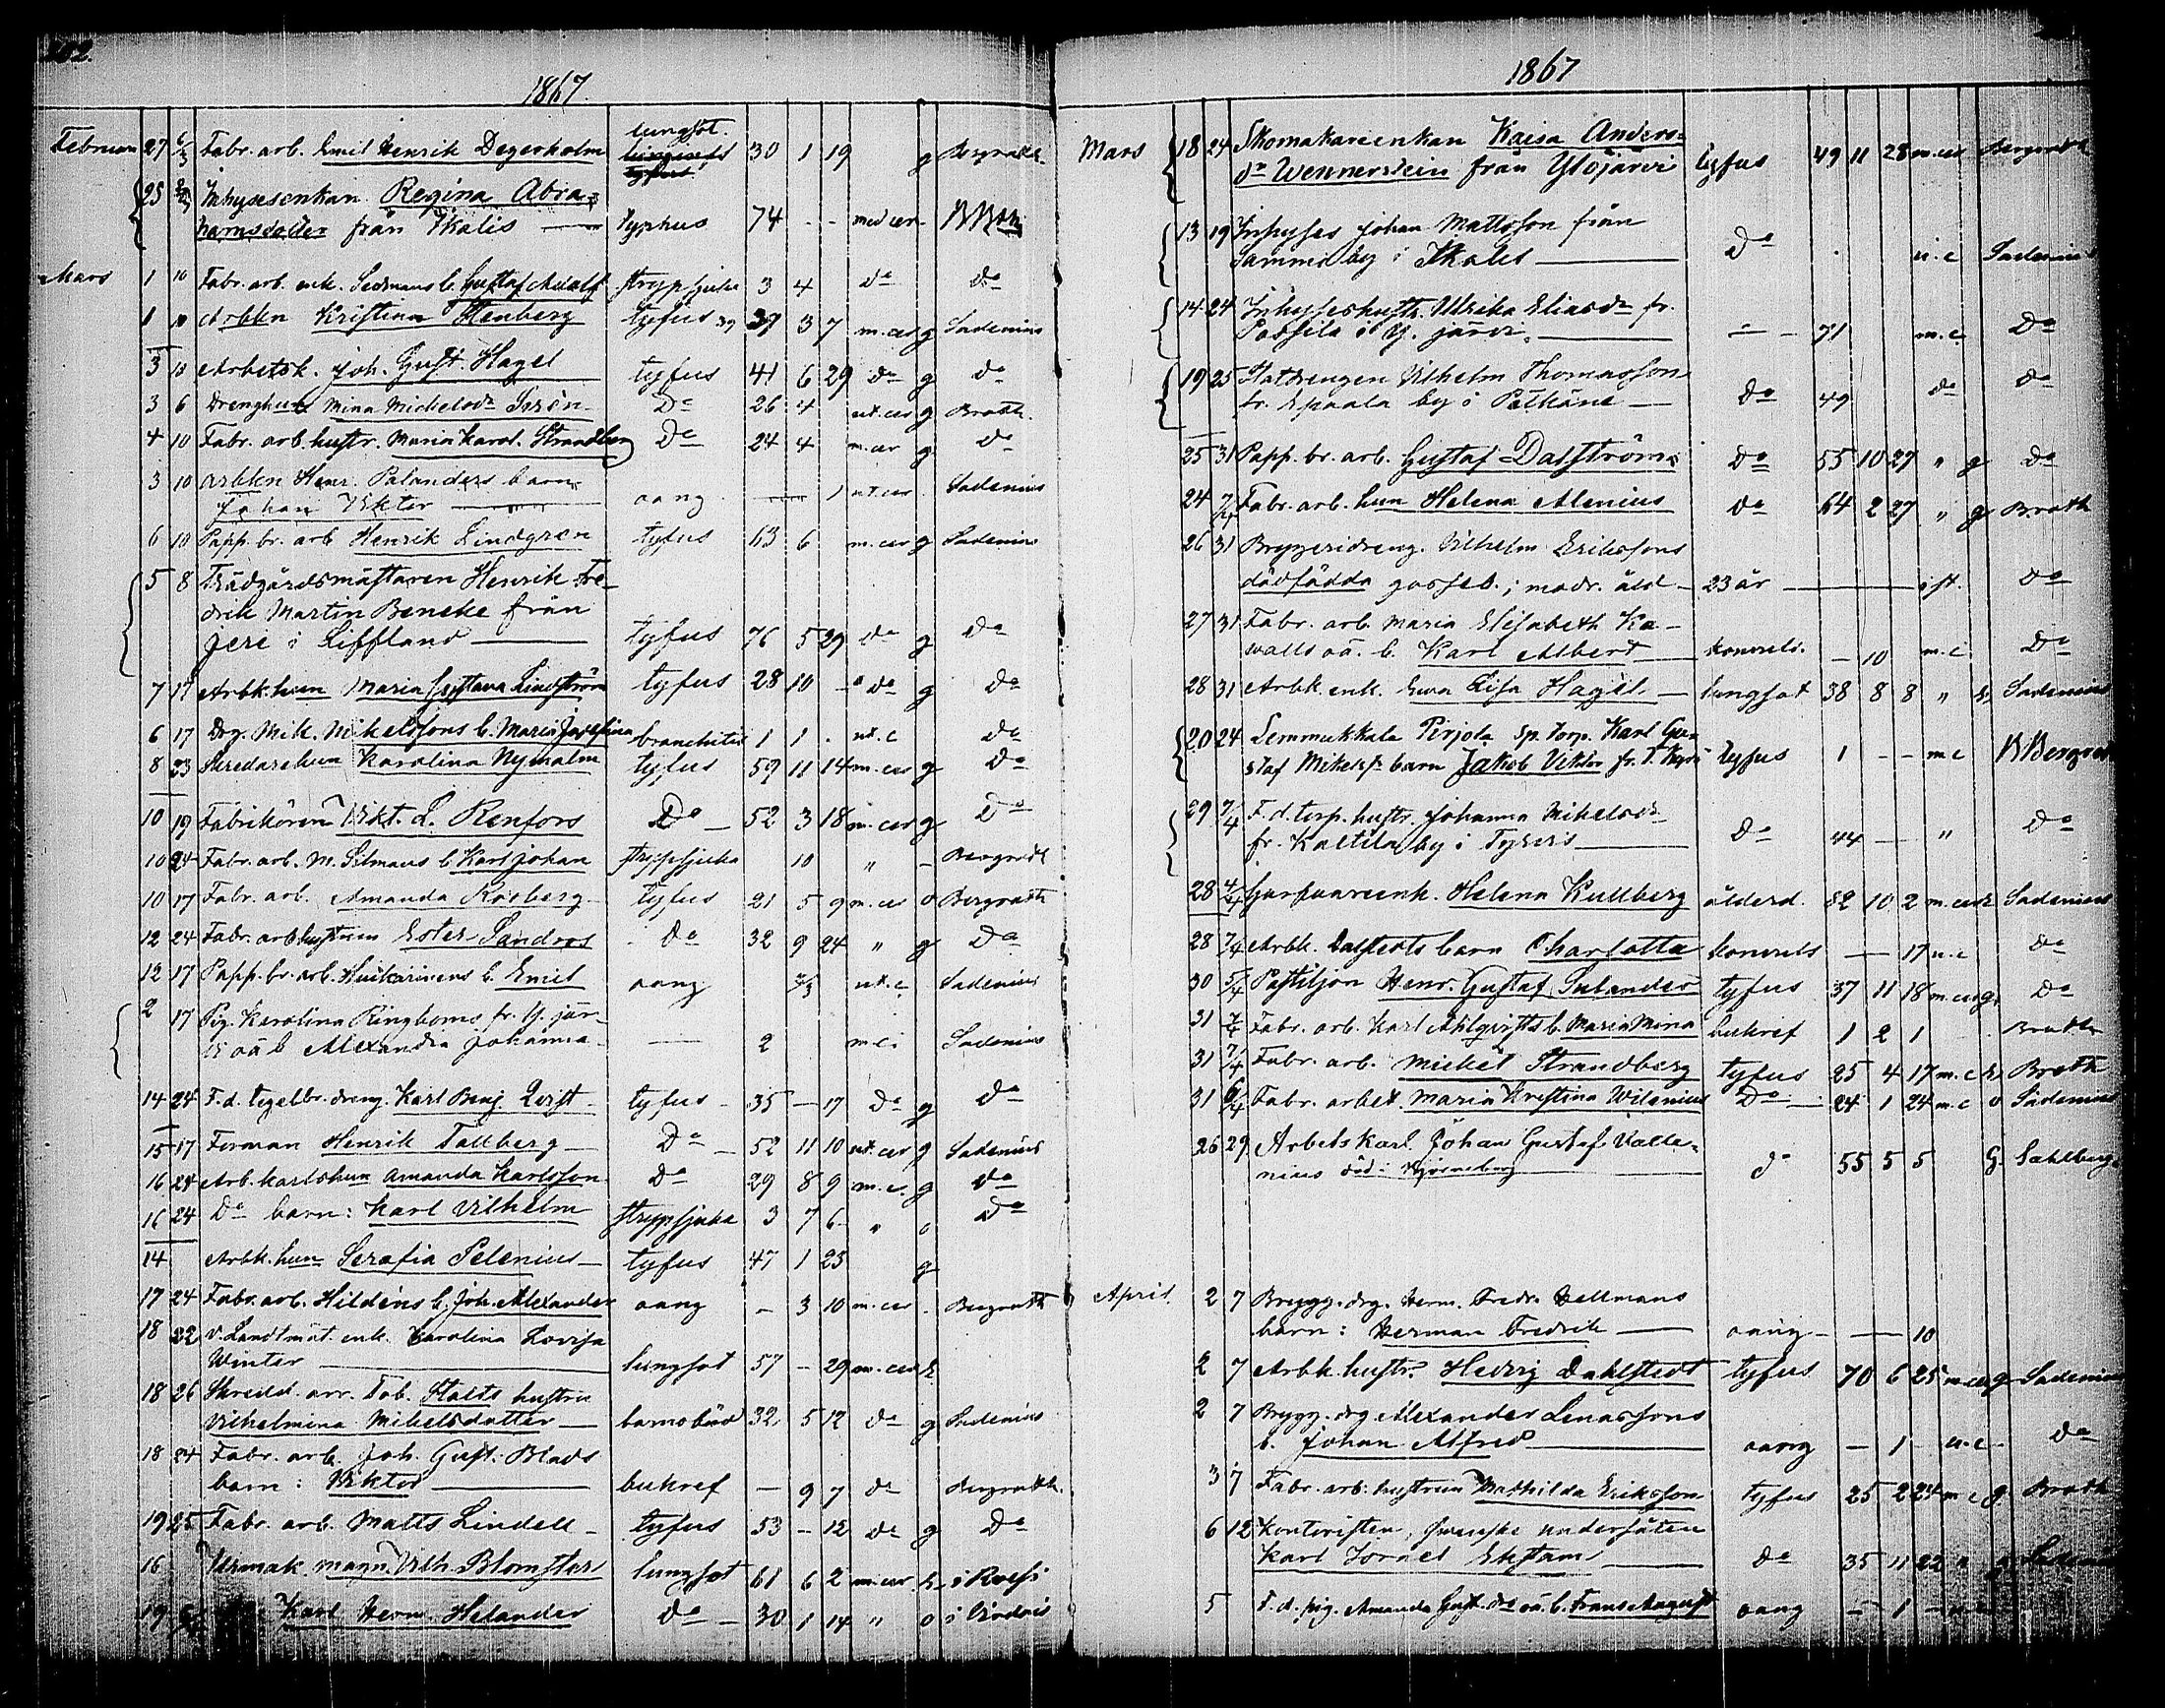 1867.
Februari 27 6/3 Fabr. arb. Emil Henrik Degerholm lungsot. 30 1 19 g Bergroth
25 Inhysesenkan Regina Abra-
hamsdotter från Ikalis — typhus 74 - - med cer.
Mars 1 10 Fabr. arb. enk. Sedmans b. Gustaf Adolf strypsjuka 3 4 Do Do
1 10 Arbkn Kristina Stenberg tyfus 39 3 7 m. cer g Sadenius
3 10 Arbetsk. Joh. Gust. Hagel tyfus 41 6 29 Do g Do
3 6 Drenghust. Mina Mickelsdr Sirén Do 26 4 ut. cer g Broth.
4 10 Fabr. arb. hustr. Maria Karol. Strandberg Do 24 4 m. cer g Do
3 10 Arbkn Henr. Palanders barn
Johan Viktor — oang — 1 ut. cer Sadenius
6 10 Papp. br. arb. Henrik Lindgren tyfus 63 6 m. cer g Sadenius
5 8 Trädgårdsmästaren Henrik Fre-
drik Martin Beneke från
Jeri i Liffland — tyfus 76 5 29 Do g Do
7 17 Arbk. hun Maria Gustava Lindström tyfus 28 10 - Do g Do
6 17 Drg. Mik. Mikelssons b. Maria Josefina bronchitis 1 1 . ut. c Do
8 23 Skredarehun Karolina Nymalm tyfus 59 11 14 m. cer g Do
10 19 Fabrikören Vikt. L. Renfors Do 52 3 18 m. cer g Do
10 24 Fabr. arb. M. Silmans b. Karl Johan strypsjuka 10 " - Bergroth
10 17 Fabr. arb. Amanda Roosberg tyfus 21 5 9 m. cer o Bergroth
12 24 Fabr. arb hustrun Ester Sandroos Do 32 9 24 " g Do
12 17 Papp. br. arb. Huikarinens b. Emil oang ut. c Sadenius
2 17 Pig. Karolina Ringboms fr. Y. jär-
vi oä b Alexandra Johanna — 2 m c. Sadenius
14 24 F. d. tegelbr. dreng. Karl Benj. Qvist tyfus 35 — 17 Do g Do
15 17 Forman Henrik Tallberg Do 52 11 10 ut. cer g Sadenius
16 24 Arb. karlshun Amanda Karlsson Do 29 8 9 m. c. g Do
16 24 Do barn: Karl Vilhelm strypsjuka 3 7 6 " o Do
14 Arbk. hun Serafia Selenius tyfus 47 1 23 g
17 24 Fabr. arb. Hildéns b. Joh. Alexander oang - 3 10 m. cer . Bergroth
18 22 v. Landtmät. enk. Karolina Lovisa
Winter — lungsot 57 - 29 m. cer
18 26 Skredd. arr. Tob. Stolts hustru
Vilhelmina Mikelsdotter — barnsbörd 32 5 12 Do g Sadenius
18 24 Fabr. arb. Joh. Gust. Blads
barn: Viktor — bukref — 9 7 Do Bergroth
19 25 Fabr. arb. Matts Lindell tyfus 53 - 12 Do g Do
16 Urmak. Vilh. Blomster lungsot 61 6 2 m. cer.
19 Karl Herm. Helander Do 30 1 14 " o i Virdois
1867
Mars 18 24 Skomakareenkan Kaisa Anders-
dr Wennerstein från Ylöjärvi tyfus 49 11 28 m. cer Bergroth
13 19 Inhyses Johan Mattsson från
Sammi by i Ikalis — Do u. c Sadenius
14 24 Inhyseshustr. Ulrika Eliasdr fr.
Passila i Y. järvi. — 71 m. c. Do
19 25 Statdrengen Vilhelm Thomasson
fr. Epaala by i Pelkäne — Do 49 Do Do
25 31 Papp. br. arb. Gustaf Dalström Do 55 10 27 " g Do
24 7/4 Fabr. arb. hun Helena Alenius Do 64 2 27 " g Broth
26 31 Bryggeridreng. Vilhelm Erikssons
dödfödda gosseb.; modr. åld — 23 år — Do
27 31 Fabr. arb. Maria Elisabeth Ka-
valls oä. b. Karl Albert — konvuls. - 10 m. c Do
28 31 Arbk. enk. Eva Lisa Hagel — lungsot 38 8 8 " Sadenius
20 24 Lemmukkala Pirjola sp. torp. Karl Gu-
staf Mikelss barn Jakob Viktor fr. T. Kyrö tyfus 1 - - m c
29 7/4 F. d. torp. hustr. Johanna Mikelsdr
fr. Kaltila by i Tyrvis — Do 44 — " Do
28 4/4 Garfvareenk. Helena Kullberg ålderd. 82 10 2 m. cer Sadenius
28 7/4 Arbk. Dalstedts barn Charlotta konvuls — 17 u. c Do
30 5/4 Postiljon Henr. Gustaf Sulander tyfus 37 11 18 m. cer g. Do
31 7/4 Fabr. arb. Karl Ahlqvists b. Maria Mina bukref 1 2 1 Broth
31 7/4 Fabr. arb. Mickel Strandberg tyfus 25 4 17 m. c Broth
31 6/4 Fabr. arbet. Maria Kristina Wilenius Do 24 1 24 m. c o Sadenius
26 29 Arbetskarl Johan Gustaf Valle-
nius död i Björneborg Do 55 5 5 G. Sahlberg
April. 2 7 Brygg. drg. Herm. Fredr. Hellmans
barn: Herman Fredrik — oang — 10
2 7 Arbk. hustr. Hedvig Dahlstedt tyfus 70 6 25 m. cer g Sadenius
2 7 Brygg. drg Alexander Lenassons
b. Johan Alfred — oang - 1 - u. c - Do
3 7 Fabr. arb. hustrun Mathilda Eriksson tyfus 25 2 24 m c g. Broth
6 12 Kontoristen, svenske undersåten
Karl Israel Ekstam — Do 35 11 22 " Sadenius
5 F. d. pig. Amanda Gust. drs oä. b. Frans August oang - 1 -